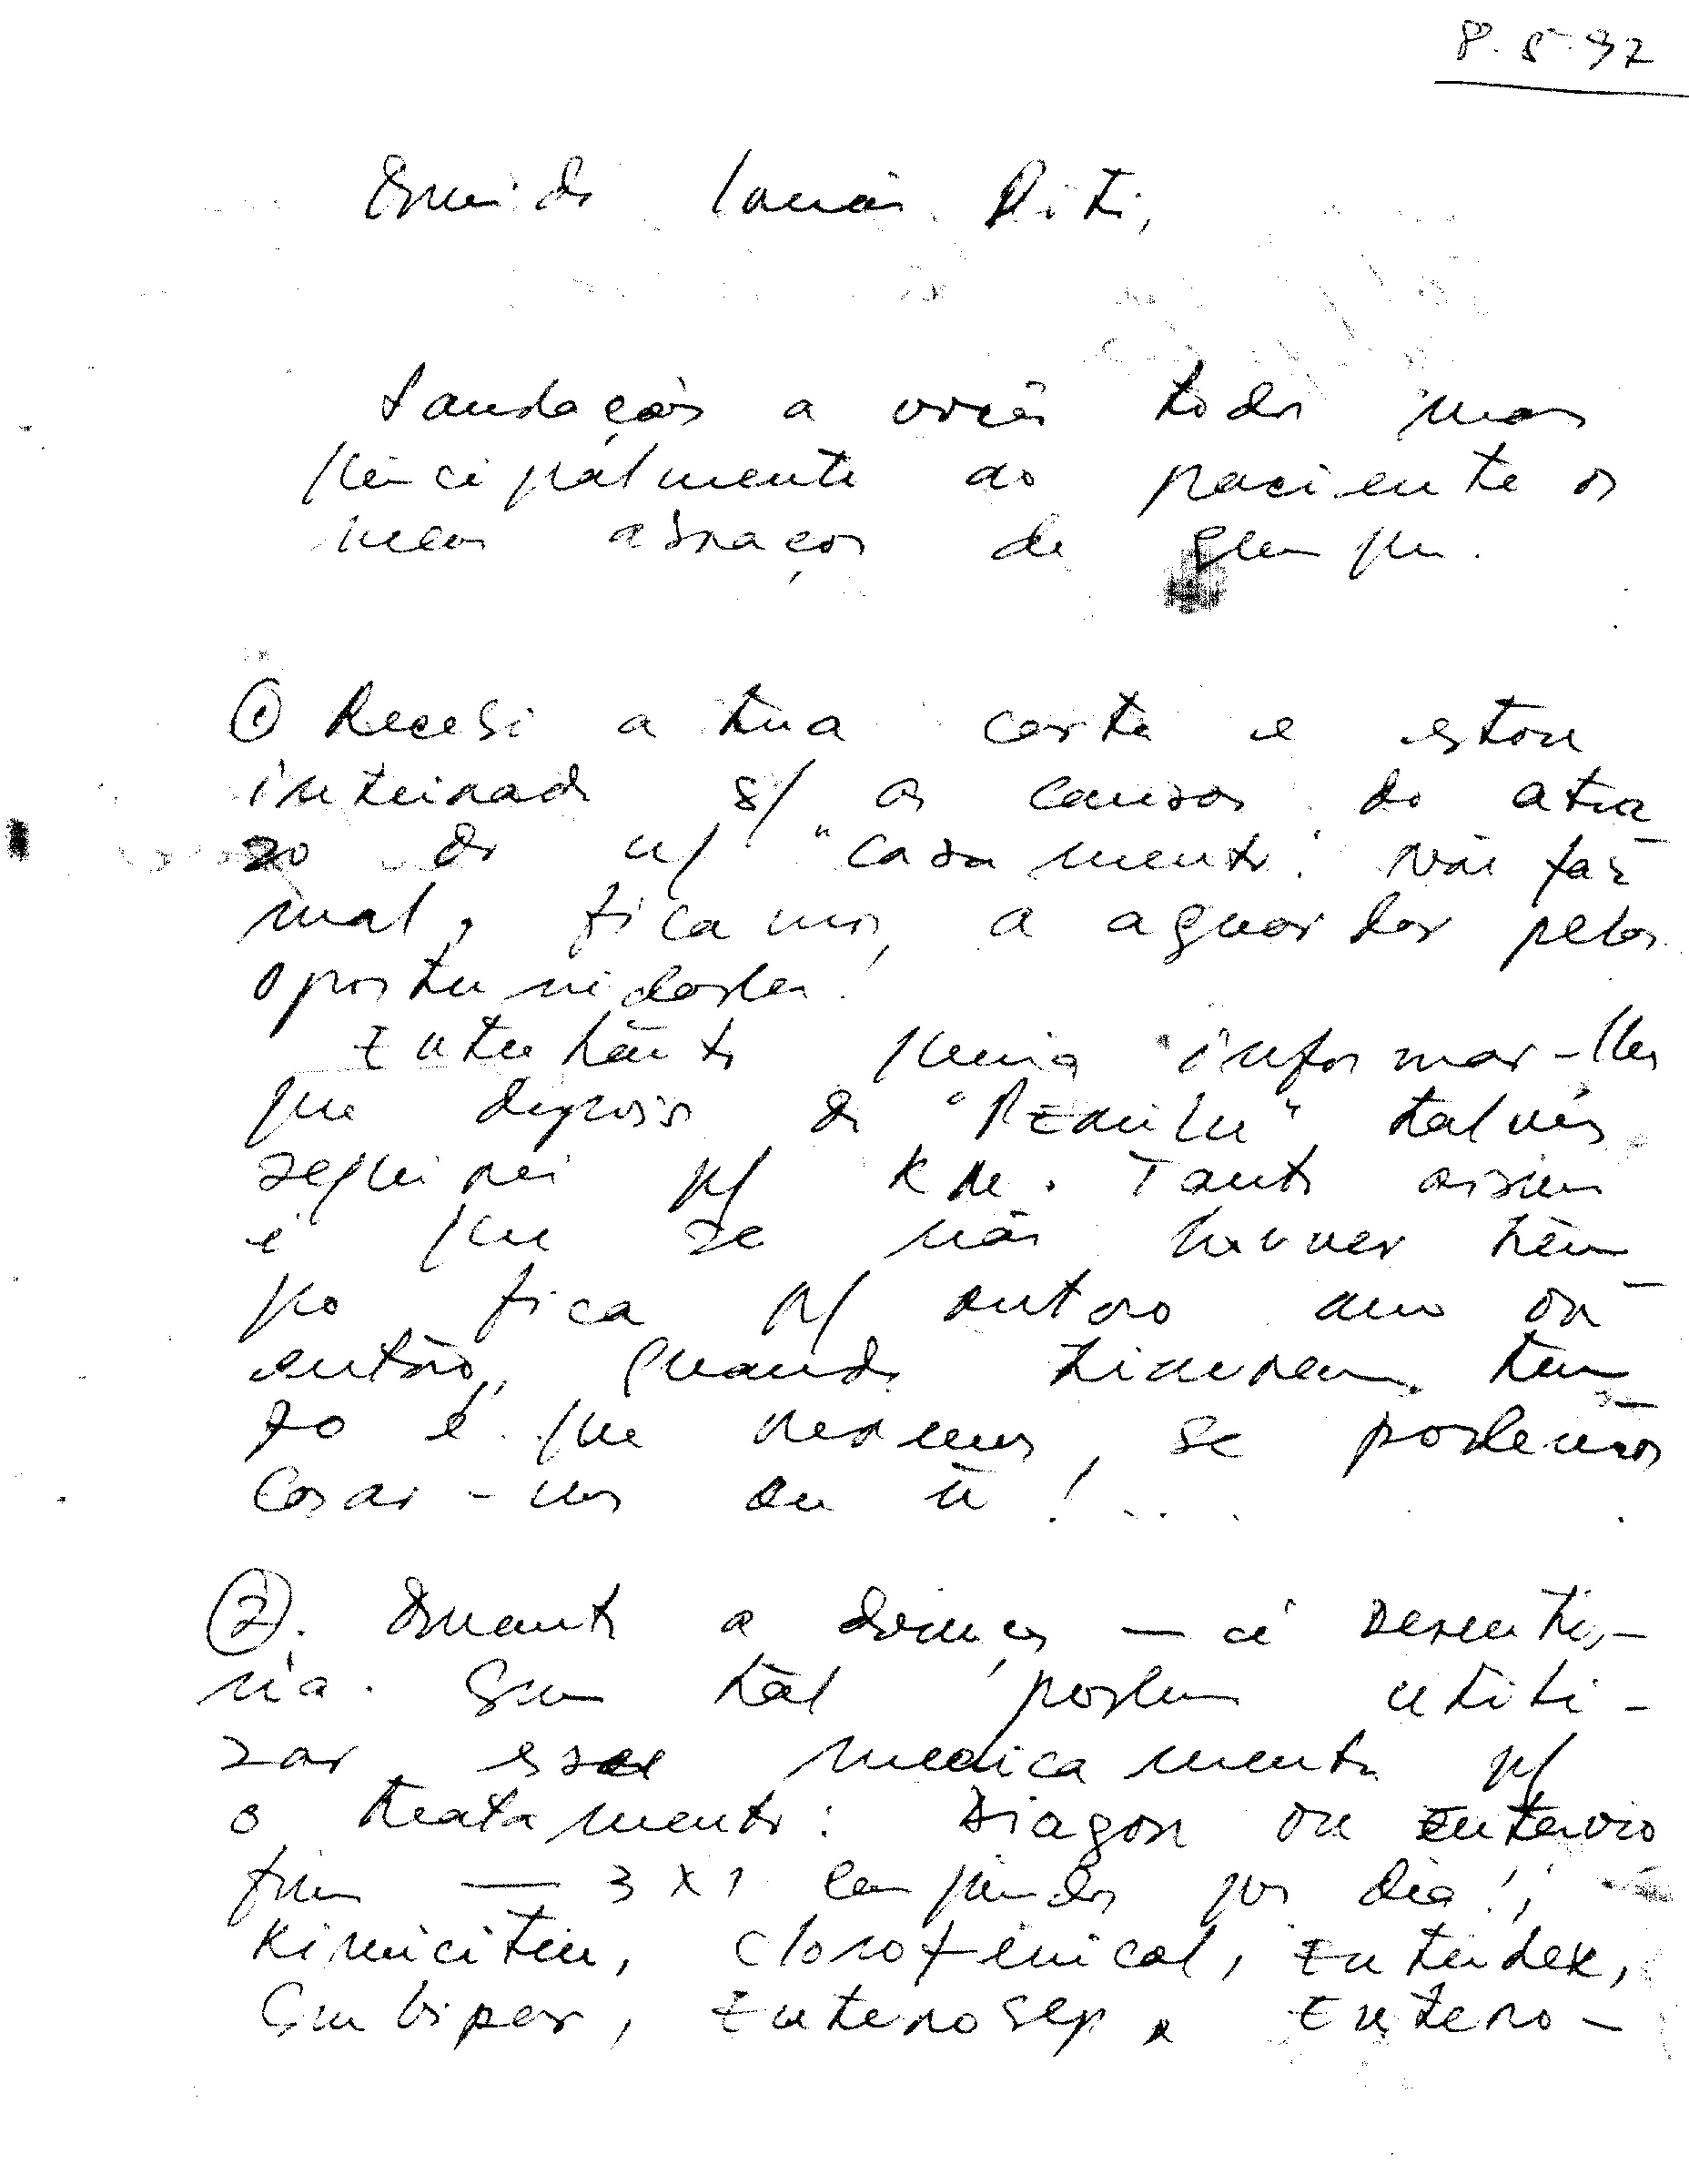 8.5.97
Querido Irmão Riti,
Saudações a vocês todos mas
principalmente ao paciente os
meus abraços de sempre.
① Recebi a tua carta e estou
inteirado s/ as causas do atra-
zo do n/ "casamento". Não faz
mal, ficamos, a aguardar pelas
oportunidades.
Entretânto queria informar-lhes
que depois de talvês
seguirei p/ Kre. Tanto assim
é que se não houver têm-
po fica p/ outoro ano ou
então, quando tiverem tem-
po é que veremos, se podemos
Casar-nos ou ñ!...
②. Quanto a doença — é Desentiri-
ria. Como tal podem utili-
zar esse medicamento p/
o tratamento: ou Enterovio
form — 3 x 1 comprimidos por dia!;
Kimicitin, Clorofenicol,
Ambipar, Enterosep, Entero-